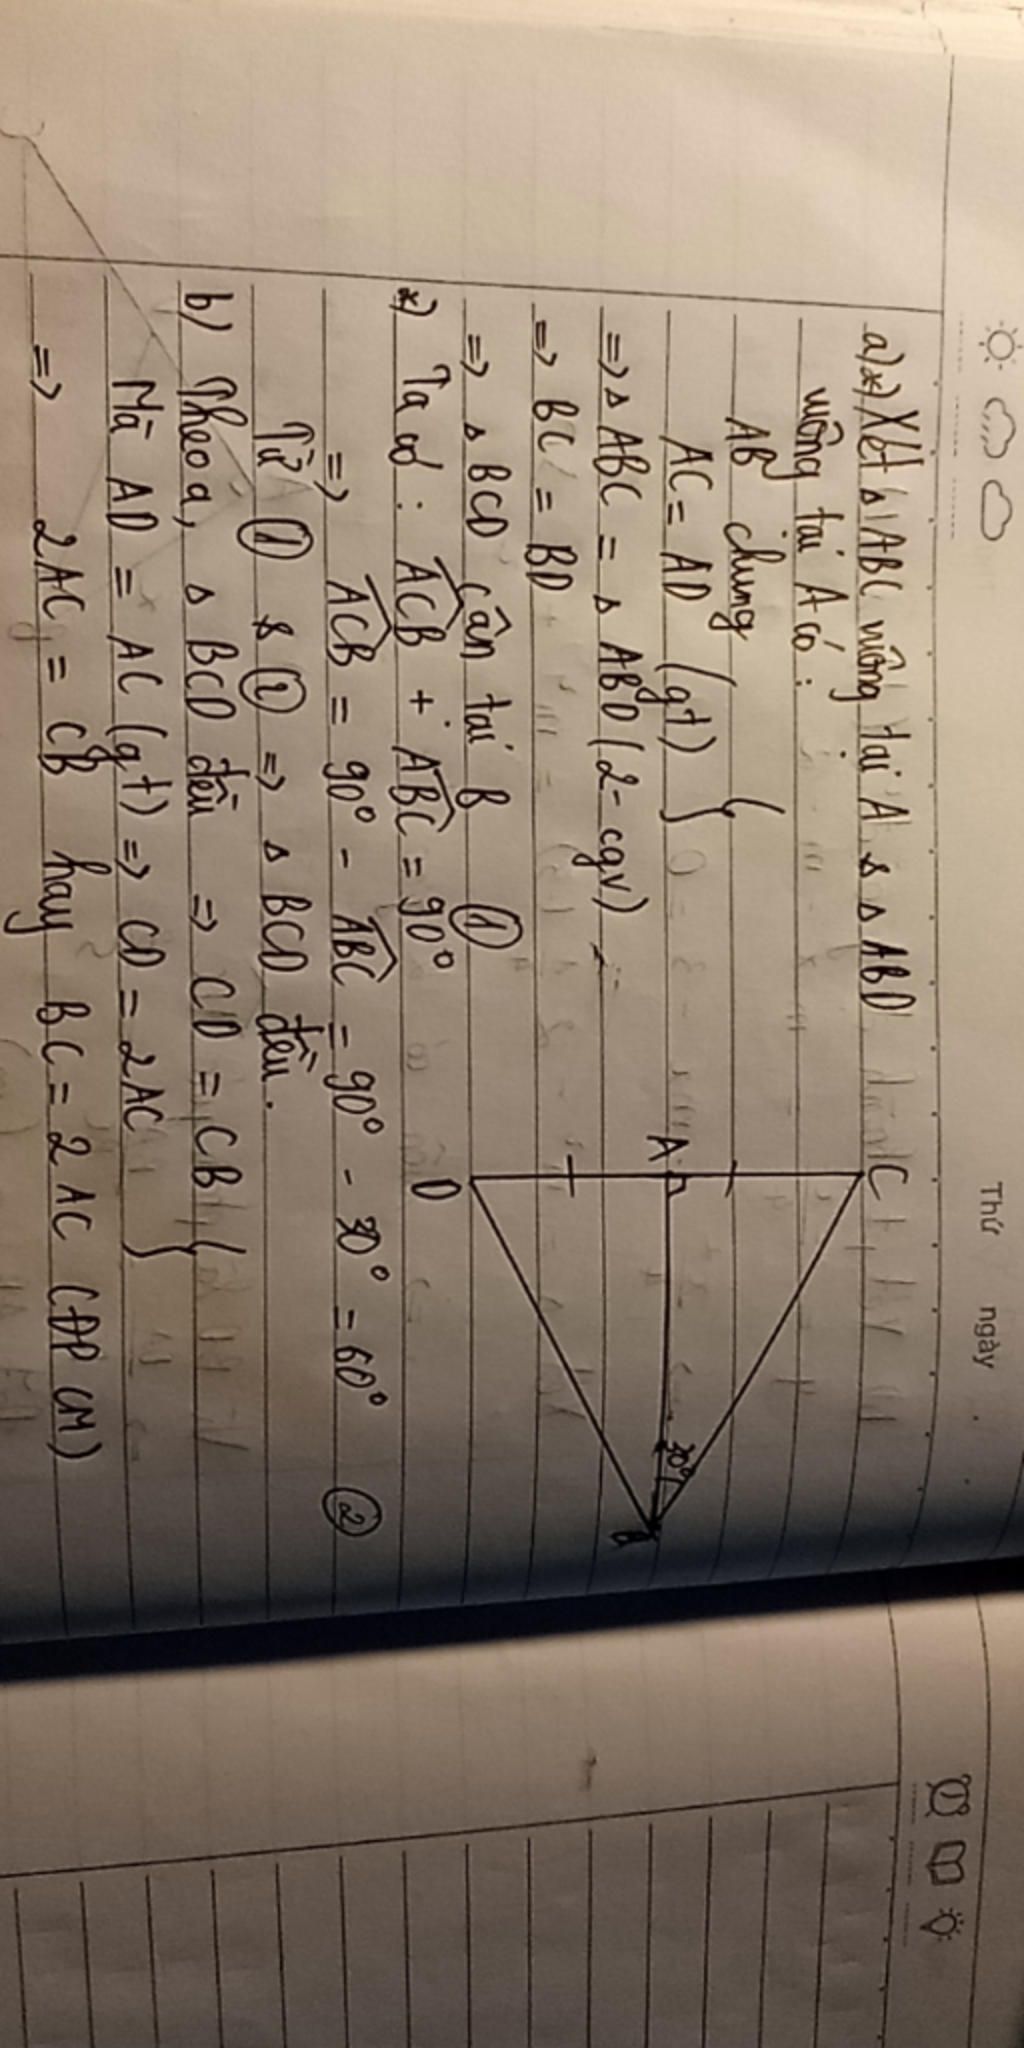 Thứ
ngày
a) *) Xét Δ ABC vuông tại A & Δ ABD
vuông tại A có:
AB chung
AC = AD (gt)
=> Δ ABC = Δ ABD (2-cgv)
=> BC = BD
=> Δ BCD cân tại B ①
*) Ta có: ACB + ABC = 90°
=> ACB = 90° - ABC = 90° - 30° = 60° ②
Từ ① & ② => Δ BCD đều.
b) Theo a, Δ BCD đều => CD = CB
Mà AD = AC (gt) => CD = 2AC
=> 2AC = CB hay BC = 2AC (ĐPCM)
C
A
D
30°
B